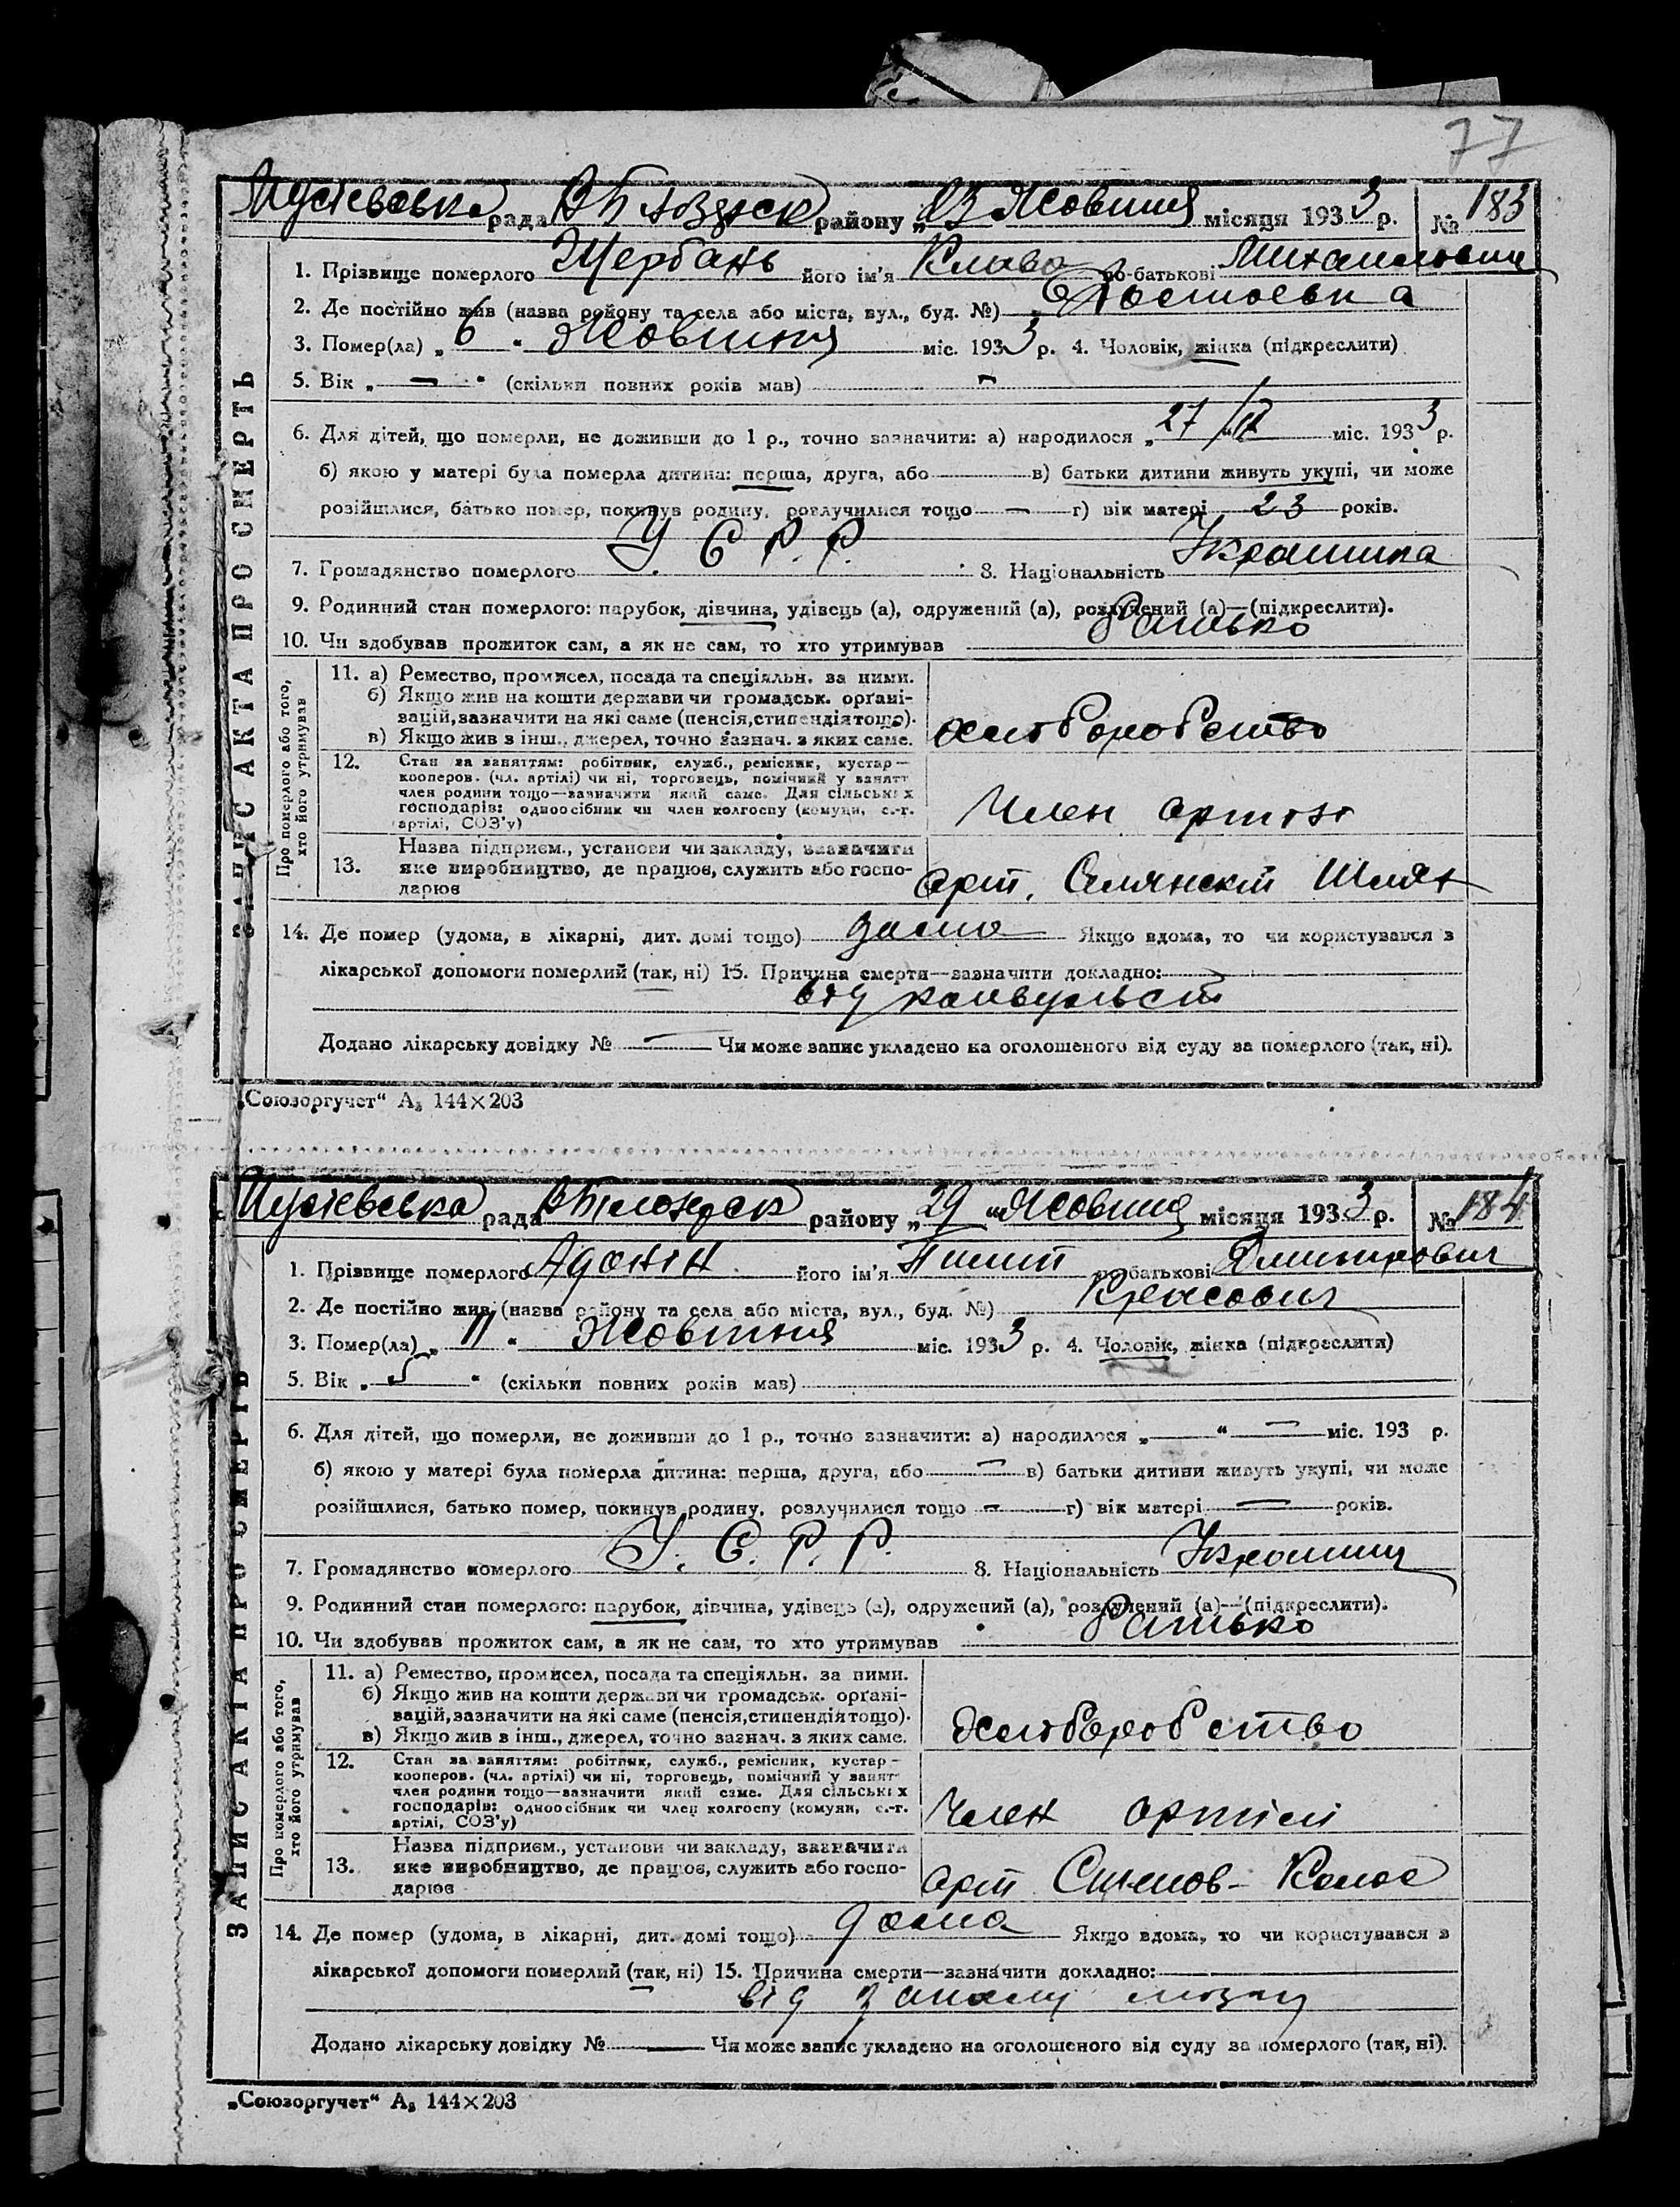 77
рада району „23 Жовтня місяця 1933 р. № 183
ЗАПИС АКТА ПРО СМЕРТЬ
1. Прізвище померлого Щербань його ім'я Клава по-батькові
2. Де постійно жив (назва району та села або міста, вул., буд. №)
3. Помер(ла) „ 6 “ Жовтня міс. 1933 р. 4. Чоловік, жінка (підкреслити)
5. Вік „ — “ (скільки повних років мав) —
6. Для дітей, що померли, не доживши до 1 р., точно зазначити: а) народилося „ 27 / міс. 1933 р.
б) якою у матері була померла дитина: перша, друга, або в) батьки дитини живуть укупі, чи може
розійшлися, батько помер, покинув родину, розлучилися тощо — г) вік матері 23 років.
7. Громадянство померлого У. С. Р. Р. 8. Національність Українка
9. Родинний стан померлого: парубок, дівчина, удівець (а), одружений (а), розлучений (а)—(підкреслити).
10. Чи здобував прожиток сам, а як не сам, то хто утримував Батько
Про померлого або того,
хто його утримував
11. а) Ремество, промисел, посада та спеціяльн. за ними.
б) Якщо жив на кошти держави чи громадськ. орґані-
зацій, зазначити на які саме (пенсія, стипендія тощо).
в) Якщо жив з інш., джерел, точно зазнач. з яких саме.
хліборобство
12. Стан за заняттям: робітник, служб., ремісник, кустар—
кооперов. (чл. артілі) чи ні, торговець, помічний у занятт
член родини тощо—зазначити який саме. Для сільських
господарів: одноосібник чи член колгоспу (комуни, с.-г.
артілі, СОЗ'у)
Член артілі
13. Назва підприєм., установи чи закладу, зазначити
яке виробництво, де працює, служить або госпо-
дарює
арт. Шлях
14. Де помер (удома, в лікарні, дит. домі тощо) дома Якщо вдома, то чи користувався з
лікарської допомоги померлий (так, ні) 15. Причина смерти—зазначити докладно:
від конвульсіт
Додано лікарську довідку № — Чи може запис укладено на оголошеного від суду за померлого (так, ні).
„Союзоргучет“ А₅ 144×203
рада району „29“ Жовтня місяця 1933 р. № 184
ЗАПИС АКТА ПРО СМЕРТЬ
1. Прізвище померлого Адонін його ім'я по-батькові Дмитрович
2. Де постійно жив (назва району та села або міста, вул., буд. №)
3. Помер(ла) „ 11 “ Жовтня міс. 1933 р. 4. Чоловік, жінка (підкреслити)
5. Вік „ 5 “ (скільки повних років мав)
6. Для дітей, що померли, не доживши до 1 р., точно зазначити: а) народилося „ “ — міс. 193 р.
б) якою у матері була померла дитина: перша, друга, або — в) батьки дитини живуть укупі, чи може
розійшлися, батько помер, покинув родину, розлучилися тощо — г) вік матері — років.
7. Громадянство померлого У. С. Р. Р. 8. Національність Українец
9. Родинний стан померлого: парубок, дівчина, удівець (а), одружений (а), розлучений (а)—(підкреслити).
10. Чи здобував прожиток сам, а як не сам, то хто утримував Батько
Про померлого або того,
хто його утримував
11. а) Ремество, промисел, посада та спеціяльн. за ними.
б) Якщо жив на кошти держави чи громадськ. орґані-
зацій, зазначити на які саме (пенсія, стипендія тощо).
в) Якщо жив з інш., джерел, точно зазнач. з яких саме.
хліборобство
12. Стан за заняттям: робітник, служб., ремісник, кустар—
кооперов. (чл. артілі) чи ні, торговець, помічний у занятт
член родини тощо—зазначити який саме. Для сільських
господарів: одноосібник чи член колгоспу (комуни, с.-г.
артілі, СОЗ'у)
Член артілі
13. Назва підприєм., установи чи закладу, зазначити
яке виробництво, де працює, служить або госпо-
дарює
арт Колос
14. Де помер (удома, в лікарні, дит. домі тощо) дома Якщо вдома, то чи користувався з
лікарської допомоги померлий (так, ні) 15. Причина смерти—зазначити докладно:
від запалу мозку
Додано лікарську довідку № — Чи може запис укладено на оголошеного від суду за померлого (так, ні).
„Союзоргучет“ А₅ 144×203